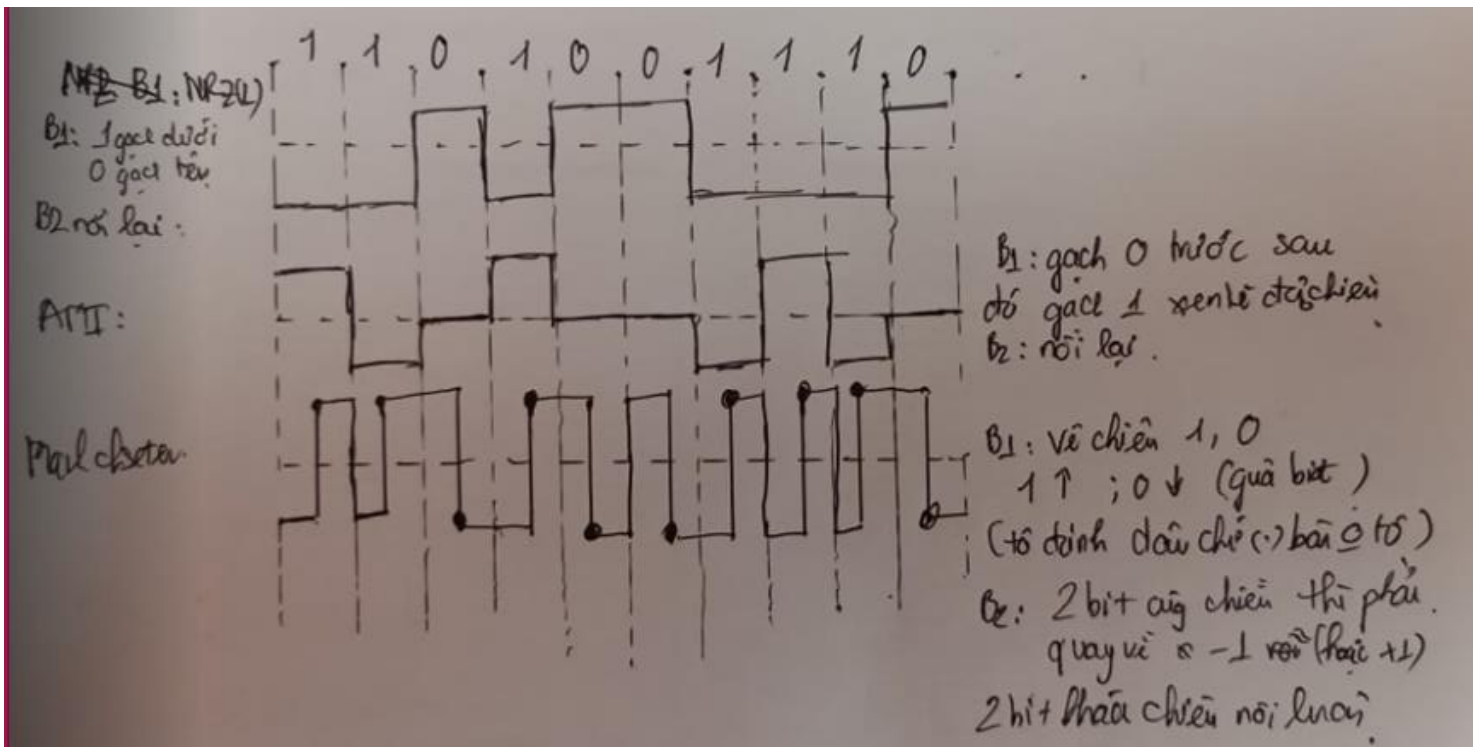 1 1 0 1 0 0 1 1 1 0 . .
B1: NRZ(L)
B1: 1 gạch dưới
0 gạch trên
B2 nối lại:
AMI:
B1: gạch 0 trước sau
đó gạch 1 xen kẽ chiều
B2: nối lại.
Manchester
B1: Vẽ chiều 1, 0
1 ↑ ; 0 ↓ (giữa bit)
(tô đỉnh dấu chỉ (.) bài tô)
B2: 2 bit chiều thì phải
quay về -1 (hoặc +1)
2 bit khác chiều nối luôn